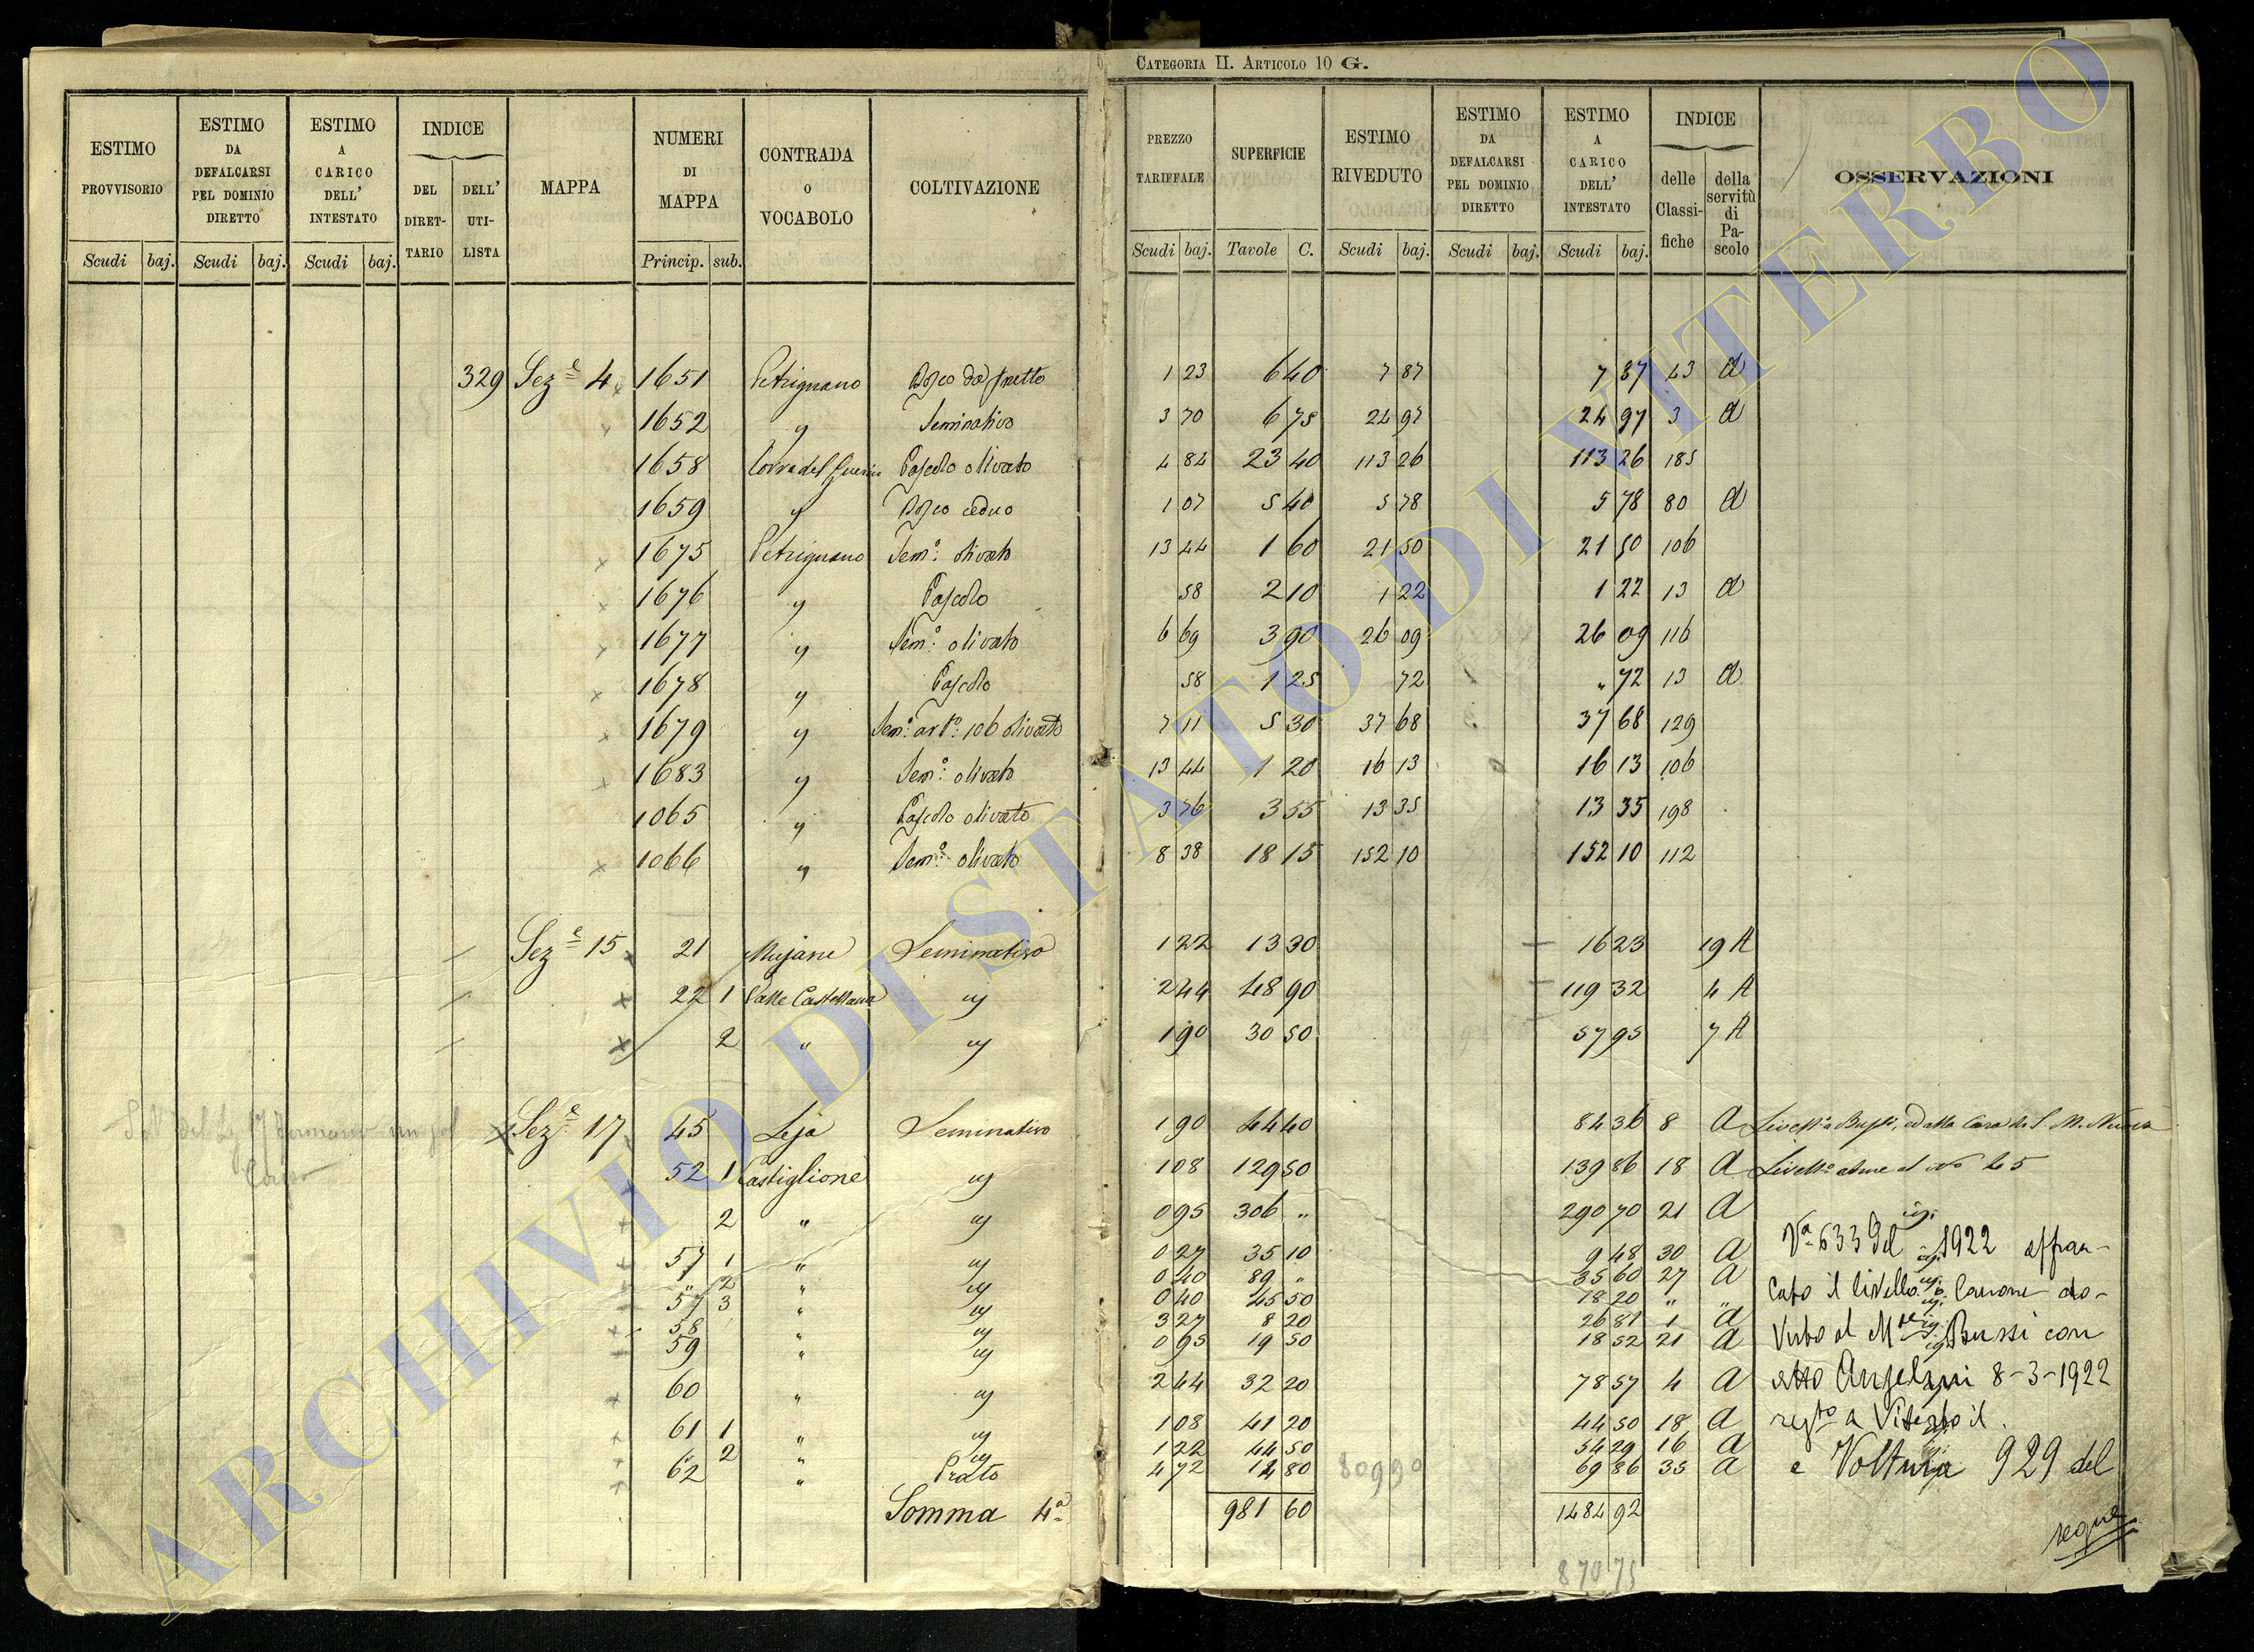 CATEGORIA II. ARTICOLO 10 G.
ESTIMO PROVVISORIO
ESTIMO DA DEFALCARSI PEL DOMINIO DIRETTO
ESTIMO A CARICO DELL' INTESTATO
INDICE
DEL DIRET-TARIO
DELL' UTI-LISTA
MAPPA
NUMERI DI MAPPA
CONTRADA O VOCABOLO
COLTIVAZIONE
Scudi baj. Scudi baj. Scudi baj. Princip. sub.
PREZZO TARIFFALE
SUPERFICIE
ESTIMO RIVEDUTO
ESTIMO DA DEFALCARSI PEL DOMINIO DIRETTO
ESTIMO A CARICO DELL' INTESTATO
INDICE
delle Classi-fiche
della servitù di Pa-scolo
OSSERVAZIONI
Scudi baj. Tavole C. Scudi baj. Scudi baj. Scudi baj.
329 Sez.e 4 1651 Petrignano Bosco da frutto 1 23 6 40 7 87 7 87 43 a
1652 " Seminativo 3 70 6 75 24 97 24 97 3 a
1658 Pascolo olivato 4 84 23 40 113 26 113 26 185
1659 " Bosco ceduo 1 07 5 40 5 78 5 78 80 a
1675 Petrignano Sem.o olivato 13 44 1 60 21 50 21 50 106
1676 " Pascolo 58 2 10 1 22 1 22 13 a
1677 " Sem.o olivato 6 69 3 90 26 09 26 09 116
1678 " Pascolo 58 1 25 72 " 72 13 a
1679 " Sem.o art.o 106 olivato 7 11 5 30 37 68 37 68 129
1683 " Sem.o olivato 13 44 1 20 16 13 16 13 106
1065 " Pascolo olivato 3 76 3 55 13 35 13 35 198
1066 " Sem.o olivato 8 38 18 15 152 10 152 10 112
Sez.e 15 21 Mujane Seminativo 1 22 13 30 16 23 19 A
22 1 Valle Castellana " 2 44 48 90 119 32 4 A
2 " " 1 90 30 50 57 95 7 A
Sez.e 17 45 Leja Seminativo 1 90 44 40 84 36 8 A
52 1 Castiglione " 1 08 129 50 139 86 18 A
2 " " 0 95 306 " 290 70 21 A
57 1 " " 0 27 35 10 9 48 30 A
" 2 " " 0 40 89 " 35 60 27 A
57 3 " " 0 40 45 50 18 20 " "
58 " " 3 27 8 20 26 81 1 a
59 " " 0 95 19 50 18 52 21 a
60 " " 2 44 32 20 78 57 4 a
61 1 " " 1 08 41 20 44 50 18 a
" 2 " " 1 22 44 50 54 29 16 a
62 " Prato 4 72 14 80 69 86 35 a
Somma 4a 981 60 1484 92
809 90
870 75
V.a 633 del 1922 affran-
cato il livello Canone do-
vuto al M.se Bussi con
atto Angelini 8-3-1922
reg.to a Viterbo il
e Voltura 929 del
segue
ARCHIVIO DI STATO DI VITERBO